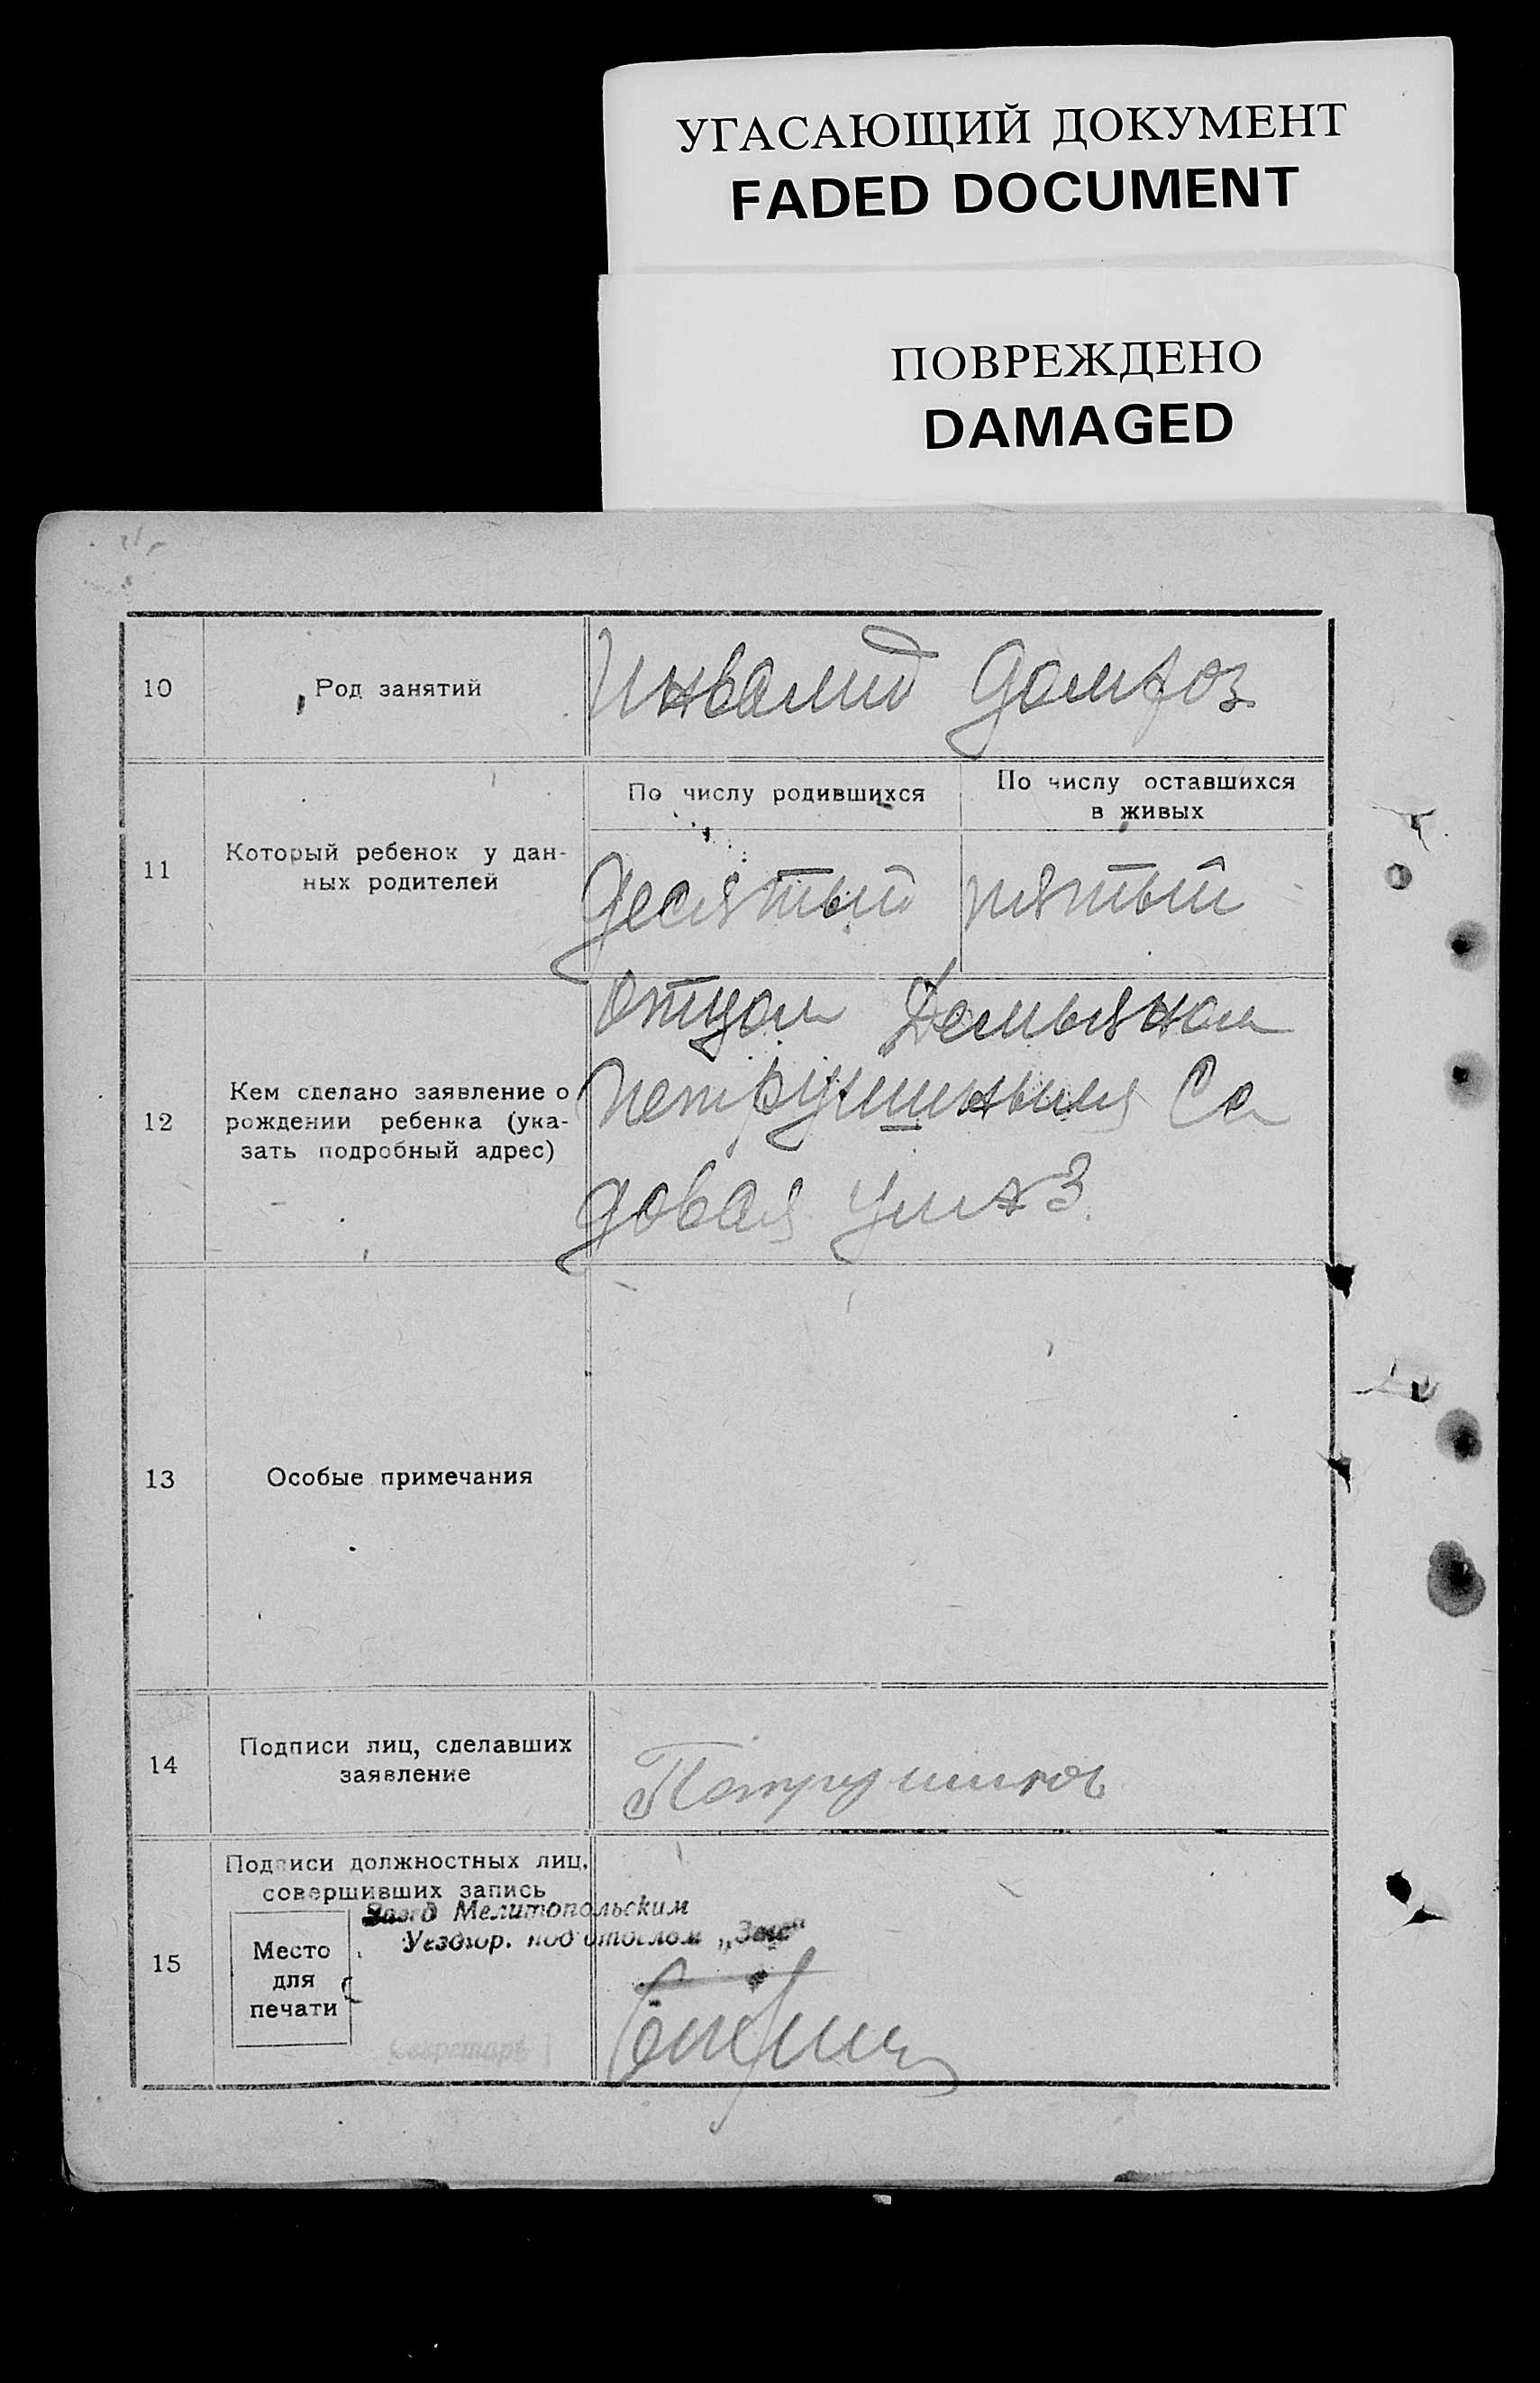 УГАСАЮЩИЙ ДОКУМЕНТ
FADED DOCUMENT
ПОВРЕЖДЕНО
DAMAGED
10
Род занятий
Инвалид домхоз
11
Который ребенок у дан-
ных родителей
По числу родившихся
По числу оставшихся
в живых
Десятый
пятый
12
Кем сделано заявление о
рождении ребенка (ука-
зать подробный адрес)
отцом Демьяном
Петрушиным Са
довая 3
13
Особые примечания
14
Подписи лиц, сделавших
заявление
15
Подписи должностных лиц,
совершивших запись
Мелитопольским
Уездгор. подотделом „Загс“
Место
для
печати
Секретарь